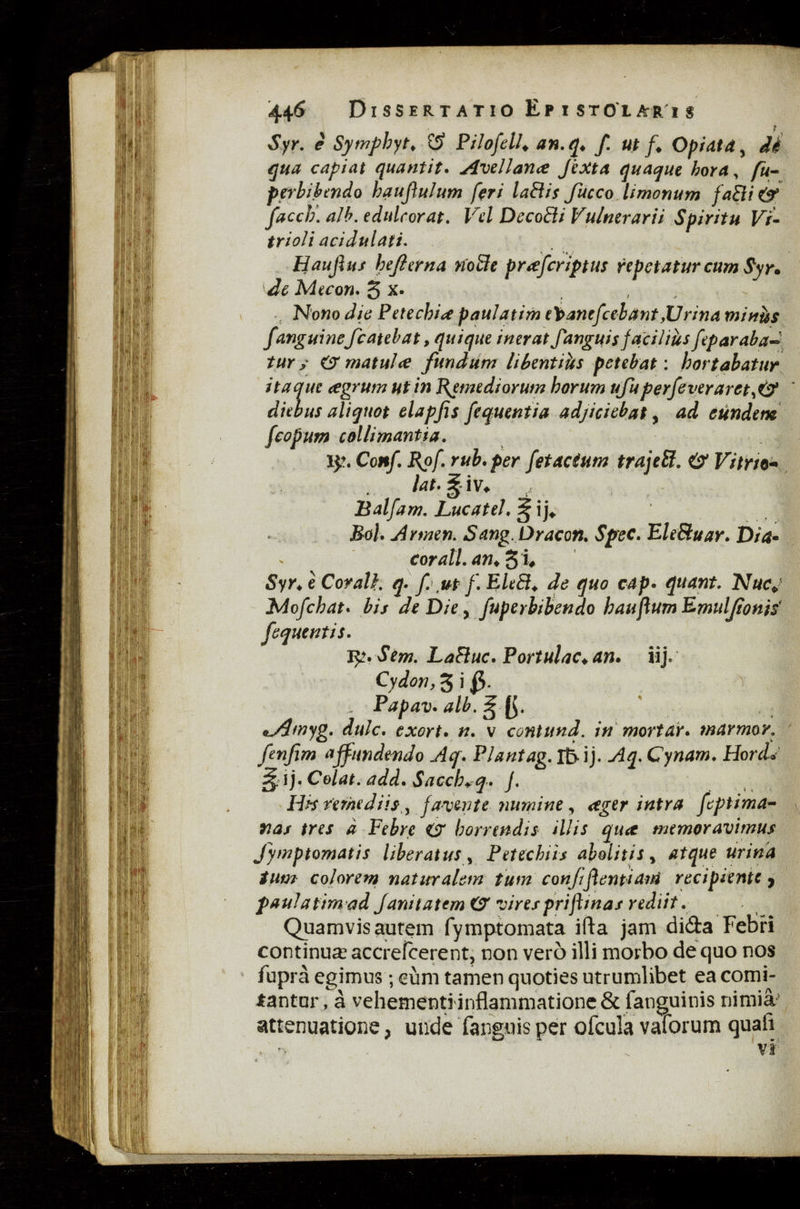 446 DISSERTATIO EPISTOLARIS
Syr. è Symphyt. & Piloſell. an. q. ſ. ut f. Opiata, de
qua capiat quantit. Avellanæ ſexta quaque hora, ſu-
perbibendo hauſtulum ſeri lactis ſucco limonum facti &
ſacch. alb. edulcorat. Vel Decocti Vulnerarii Spiritu Vi-
trioli acidulati.
Hauſtus heſterna nocte præſcriptus repetatur cum Syr.
de Mecon. ʒ x.
Nono die Petechiæ paulatim evaneſcebant, Urina minùs
ſanguine ſcatebat, quique inerat ſanguis faciliùs ſeparaba-
tur; & matulæ fundum libentiùs petebat: hortabatur
itaque ægrum ut in Remediorum horum uſu perſeveraret, &
diebus aliquot elapſis ſequentia adjiciebat, ad eundem
ſcopum collimantia.
℞. Conſ. Roſ. rub. per ſetacium traject. & Vitrio-
lat. ℥ iv.
Balſam. Lucatel. ℥ ij.
Bol. Armen. Sang. Dracon. Spec. Electuar. Dia-
corall. an. ʒ i.
Syr. è Corall. q. ſ. ut f. Elect. de quo cap. quant. Nuc.
Moſchat. bis de Die, ſuperbibendo hauſtum Emulſionis
ſequentis.
℞. Sem. Lactuc. Portulac. an. iij.
Cydon, ʒ i ß.
Papav. alb. ℥ ß.
Amyg. dulc. exort. n. v contund. in mortar. marmor.
ſenſim affundendo Aq. Plantag. ℔ ij. Aq. Cynam. Hord.
℥ ij. Colat. add. Sacch. q. ſ.
His remediis, favente numine, æger intra ſeptima-
nas tres à Febre & horrendis illis quæ memoravimus
ſymptomatis liberatus, Petechiis abolitis, atque urina
tum colorem naturalem tum conſiſtentiam recipiente,
paulatim ad ſanitatem & vires priſtinas rediit.
Quamvis autem ſymptomata iſta jam dicta Febri
continuæ accreſcerent, non verò illi morbo de quo nos
ſuprà egimus; cùm tamen quoties utrumlibet ea comi-
tantur, à vehementi inflammatione & ſanguinis nimiâ
attenuatione, unde ſanguis per oſcula vaſorum quaſi
vi